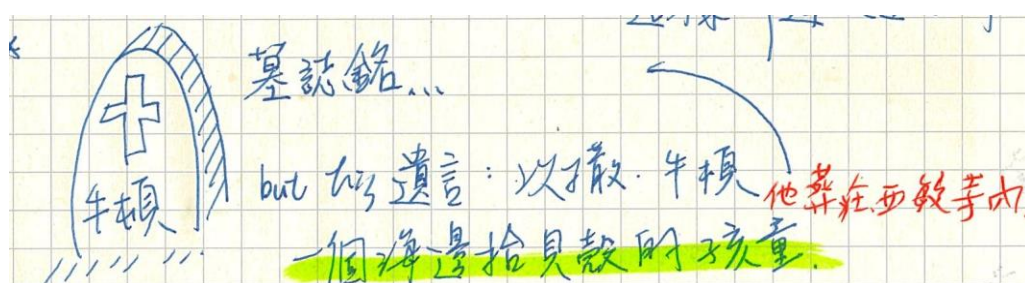 墓誌銘...
牛頓
but 他的遺言：以撒．牛頓
他葬在西敏寺內
一個海邊拾貝殼的孩童.